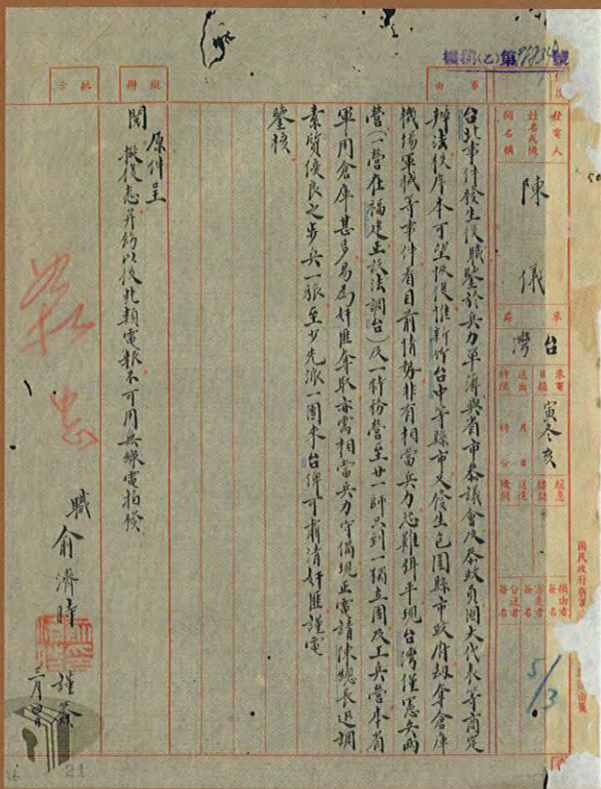 機秘(乙)第 號
事由
擬辦
批示
發電人姓名或機關名稱
陳儀
來處
台灣
來電日韻
寅冬亥
送出時限
月日
時分
台北事件發生後職鑒於兵力單薄與省市參議會及參政員國大代表等商定
辦法秩序本可望恢復惟新竹台中等縣市又發生包圍縣市政府刼奪倉庫
機場軍械等事件看目前情勢非有相當兵力恐難弭平現台灣僅憲兵兩
營(一營在福建正設法調台)及一特務營至廿一師只到一獨立團及工兵營本省
軍用倉庫甚多易為奸匪奪取亦需相當兵力守備現正電請陳總長迅調
素質優良之步兵一旅至少先派一團來台俾可肅清奸匪謹電
鑒核
原件呈
閱
擬復悉并飭以後此類電報不可用無線電拍發
職俞濟時謹簽
三月四日
5/3
21